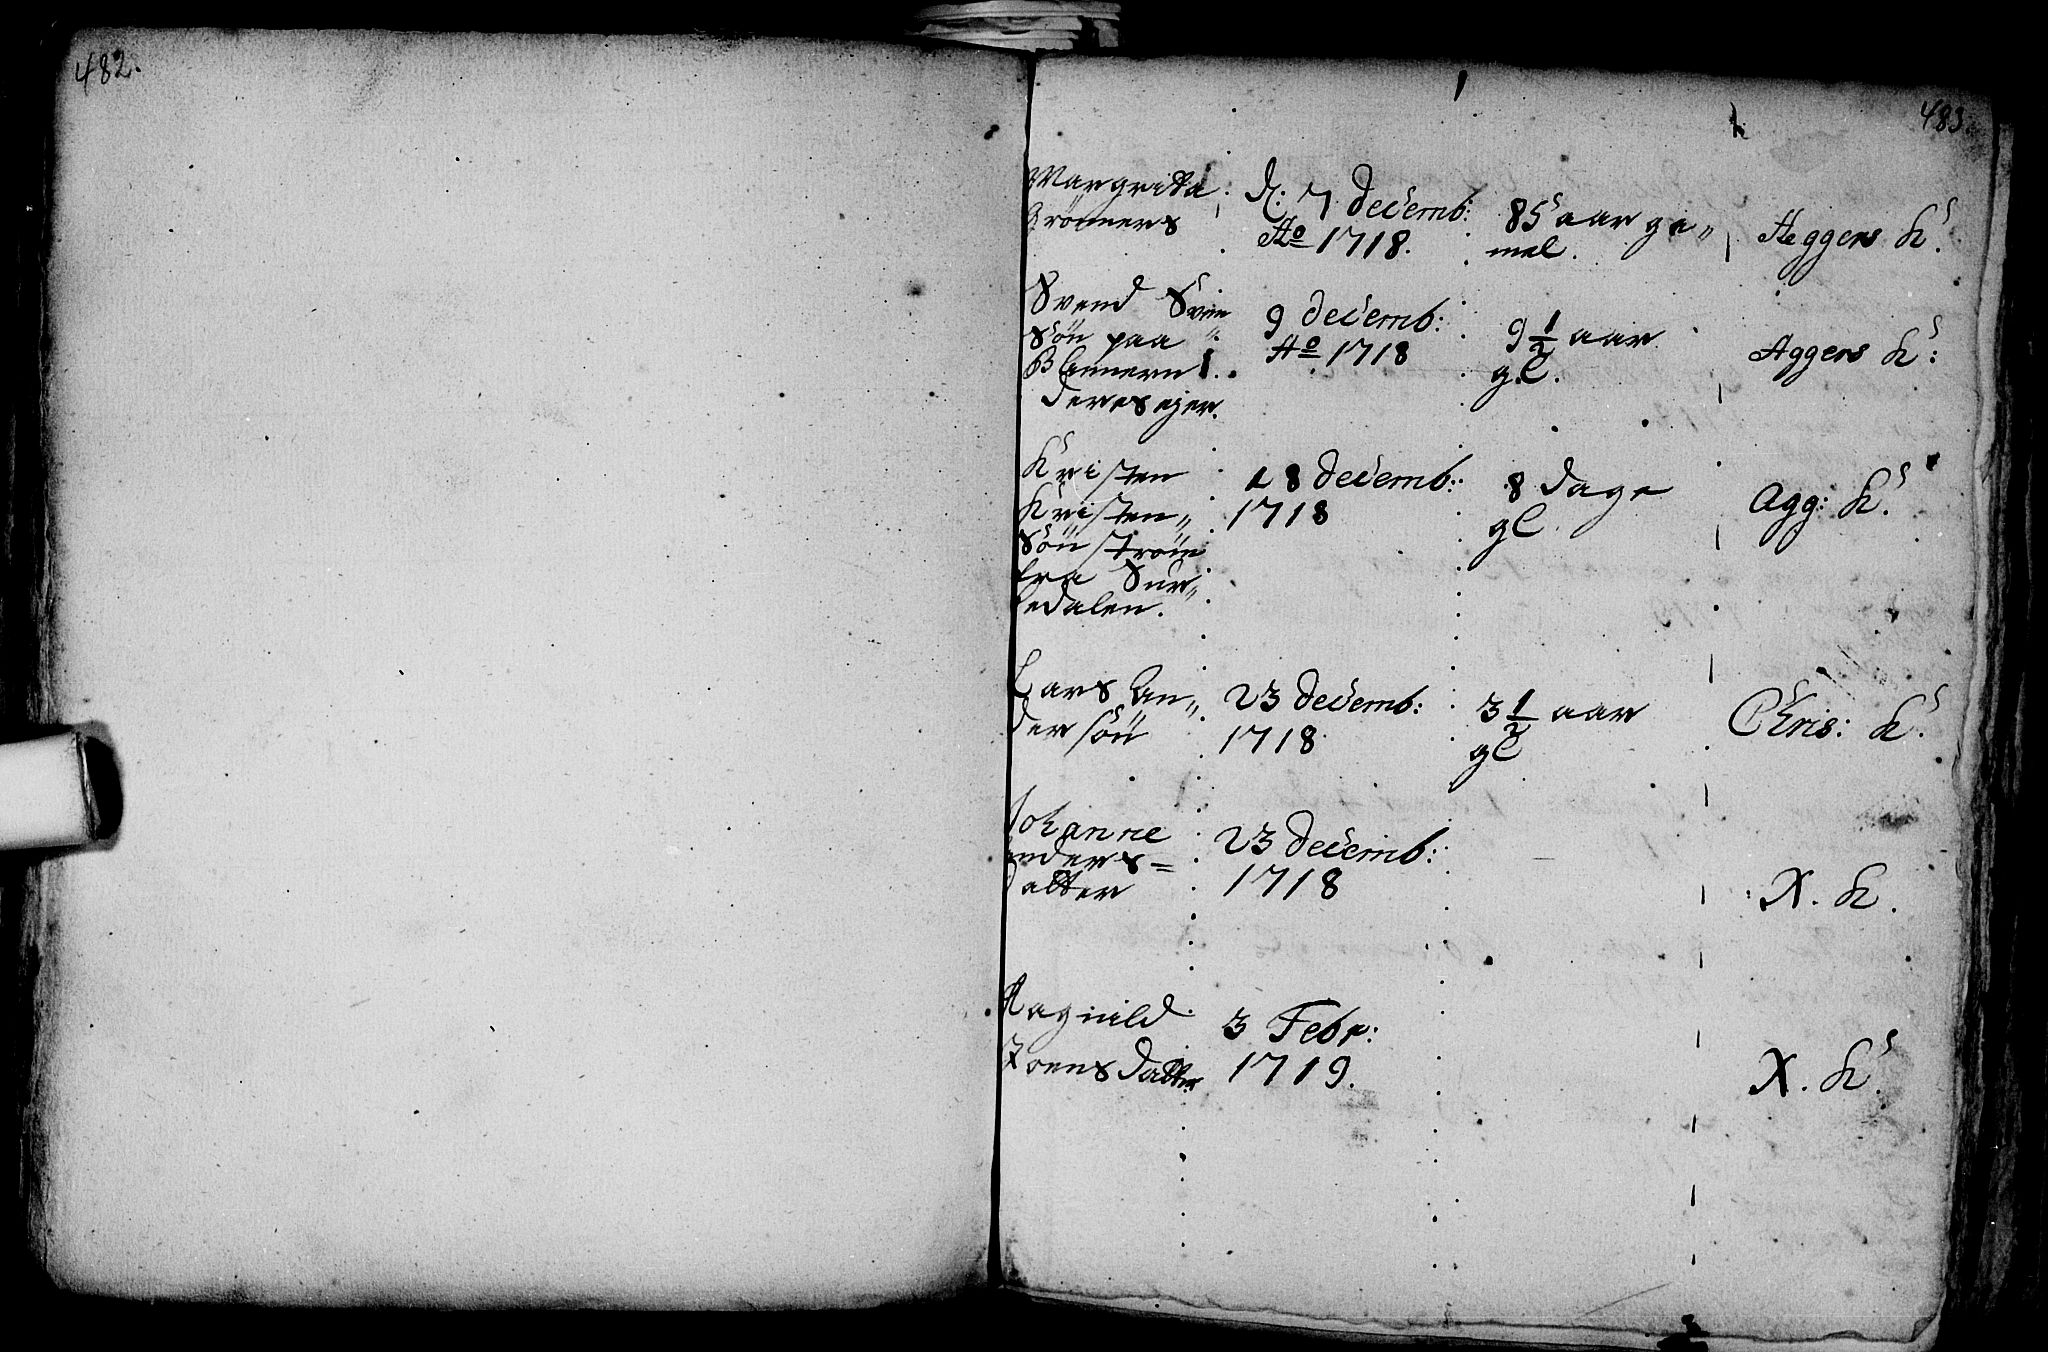 482.
483
Margrita
Grönners
d. 7 Decemb:
Aō 1718.
85 aar ga„
mel.
Aggers K.
Svend Sven
Sön paa
deres ejer.
9 Decemb:
Aō 1718
9 1/2 aar
gl.
Aggers K:
Kristen
Kristen„
Sön Ström
fra Sur„
dalen.
18 Decemb:
1718
8 Dage
gl
Agg: K.
Lars An„
der sön
23 Decemb:
1718
3 1/2 aar
gl
Chris: K.
Johanne
Anders=
datter
23 Decemb:
1718
X. K.
Ragnild
Joens Datter
3 Febr:
1719.
X. K.